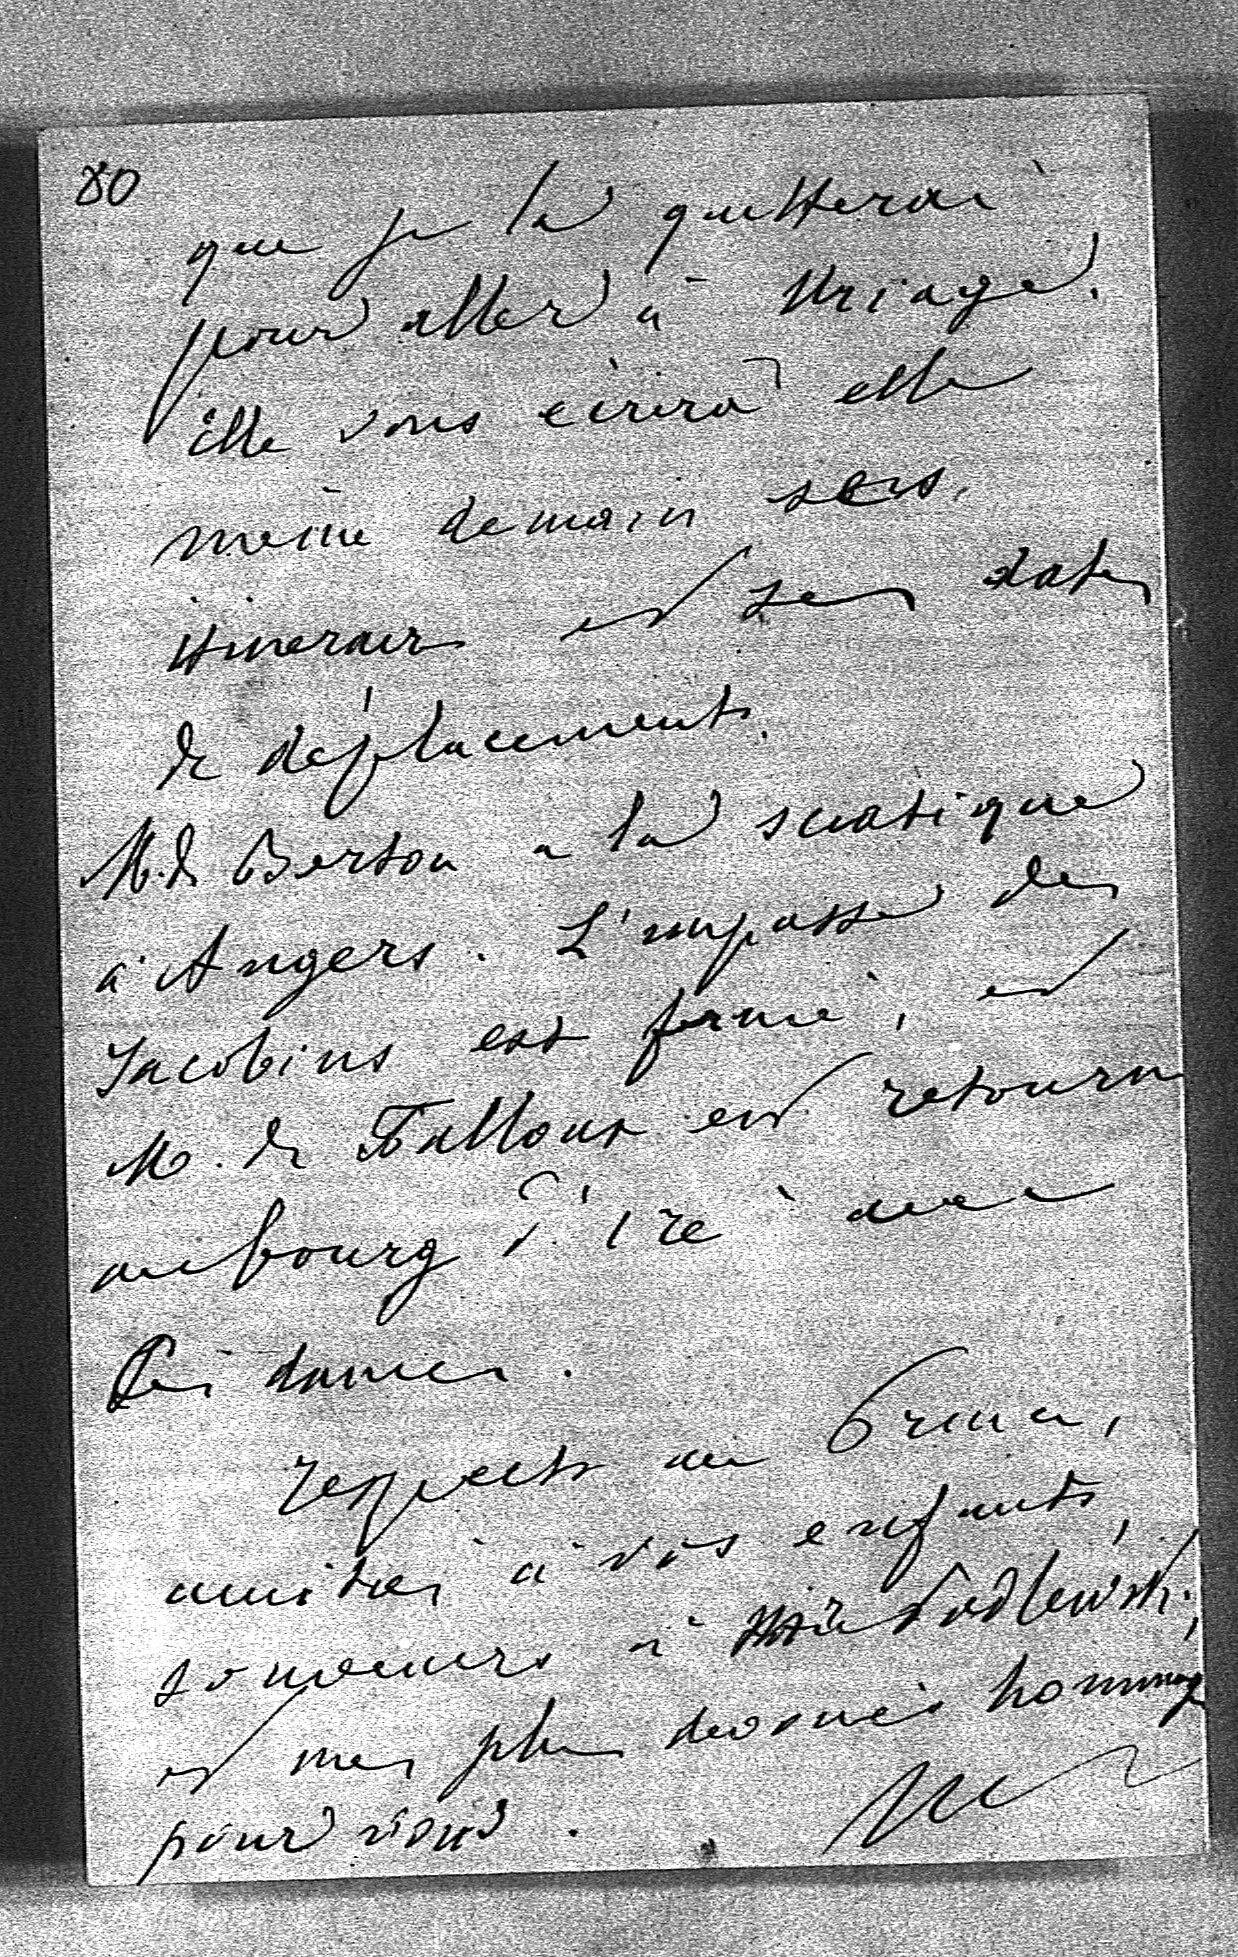 80
que je la quitterai
pour aller à Uriage.
Elle vous écrira elle
même demain ses
itineraires et ses dates
de déplacements.
M. de Berton a la sciatique
à Angers. L'impasse des
Jacobins est fermé, et
M. de Falloux est retourné
au bourg d'iré avec
ses dames.
respects au Prince,
amitiés à vos enfants,
souvenirs à Podlewski,
et mes plus dévoués hommages
pour vous.